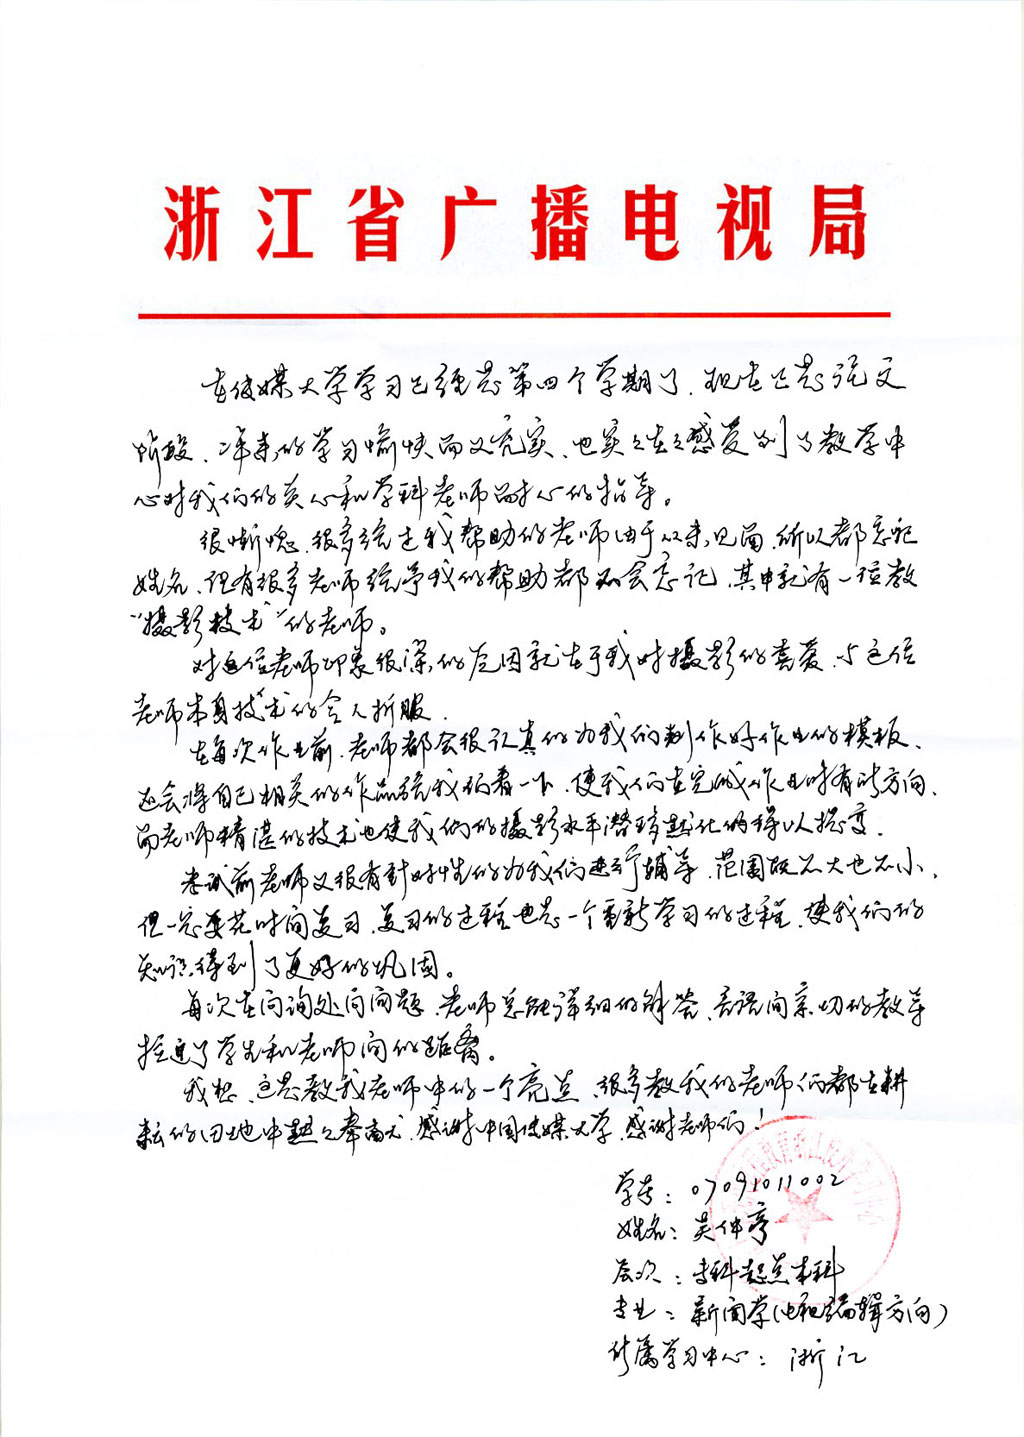 浙江省广播电视局
在传媒大学学习已经是第四个学期了.现在已是论文
阶段、二年来的学习愉快而又充实、也实实在在感受到了教学中
心对我们的关心和学科老师的耐心的指导。
很惭愧.很多给过我帮助的老师由于从未见面.所以都忘记
姓名、但有很多老师给予我的帮助都不会忘记、其中就有一位教
“摄影技术”的老师。
对这位老师印象很深的原因就在于我对摄影的喜爱、与这位
老师本身技术的令人折服.
在每次作业前.老师都会很认真的为我们制作好作业的模板、
还会将自己相关的作品给我们看一下、使我们在完成作业时有所方向、
而老师精湛的技术也使我们的摄影水平潜移默化的得以提高.
考试前老师又很有针对性的为我们进行辅导.范围既不大也不小、
但一定要花时间复习.复习的过程也是一个重新学习的过程.使我们的
知识得到了更好的巩固。
每次在问询处问问题、老师总能详细的解答、言语间亲切的教导
拉近了学生和老师间的距离。
我想、这是教我老师中的一个亮点、很多教我的老师们都在耕
耘的田地中默默奉献.感谢中国传媒大学.感谢老师们！
学号：07091011002
姓名：吴仲亨
层次：专科起点本科
专业：新闻学(电视编辑方向)
所属学习中心：浙江